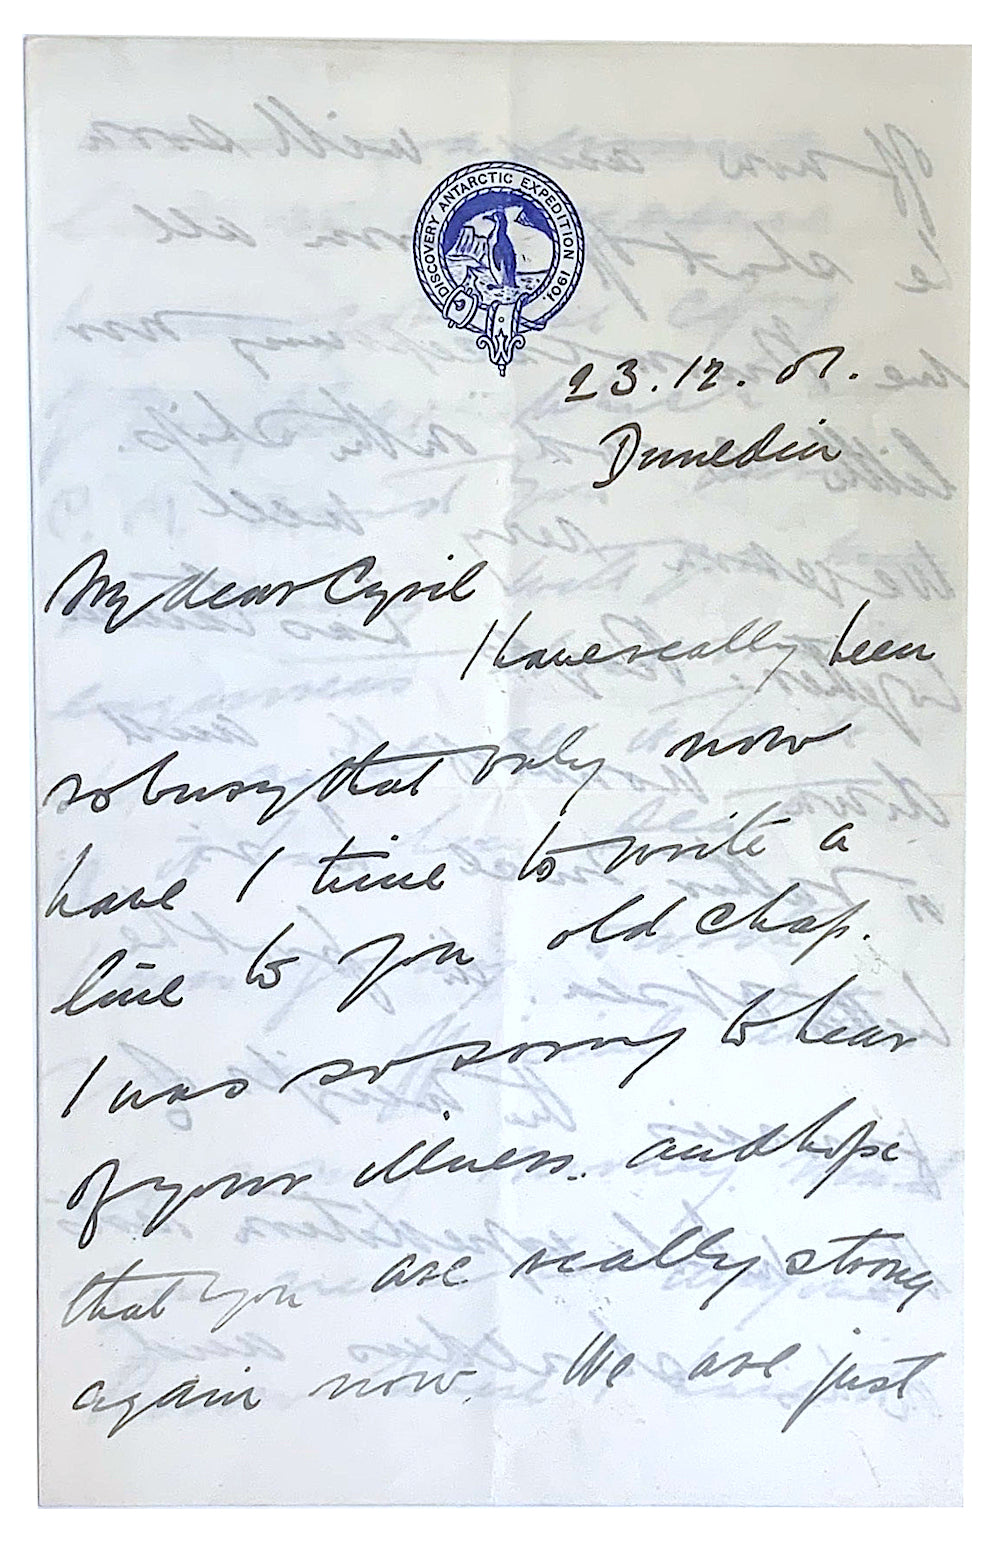 DISCOVERY ANTARCTIC EXPEDITION 1901.
23.12.01.
Dunedin
My dear Cyril
I have really been
so busy that only now
have I time to write a
line to you old chap.
I was so sorry to hear
of your illness. and hope
that you are really strong
again now. We are just